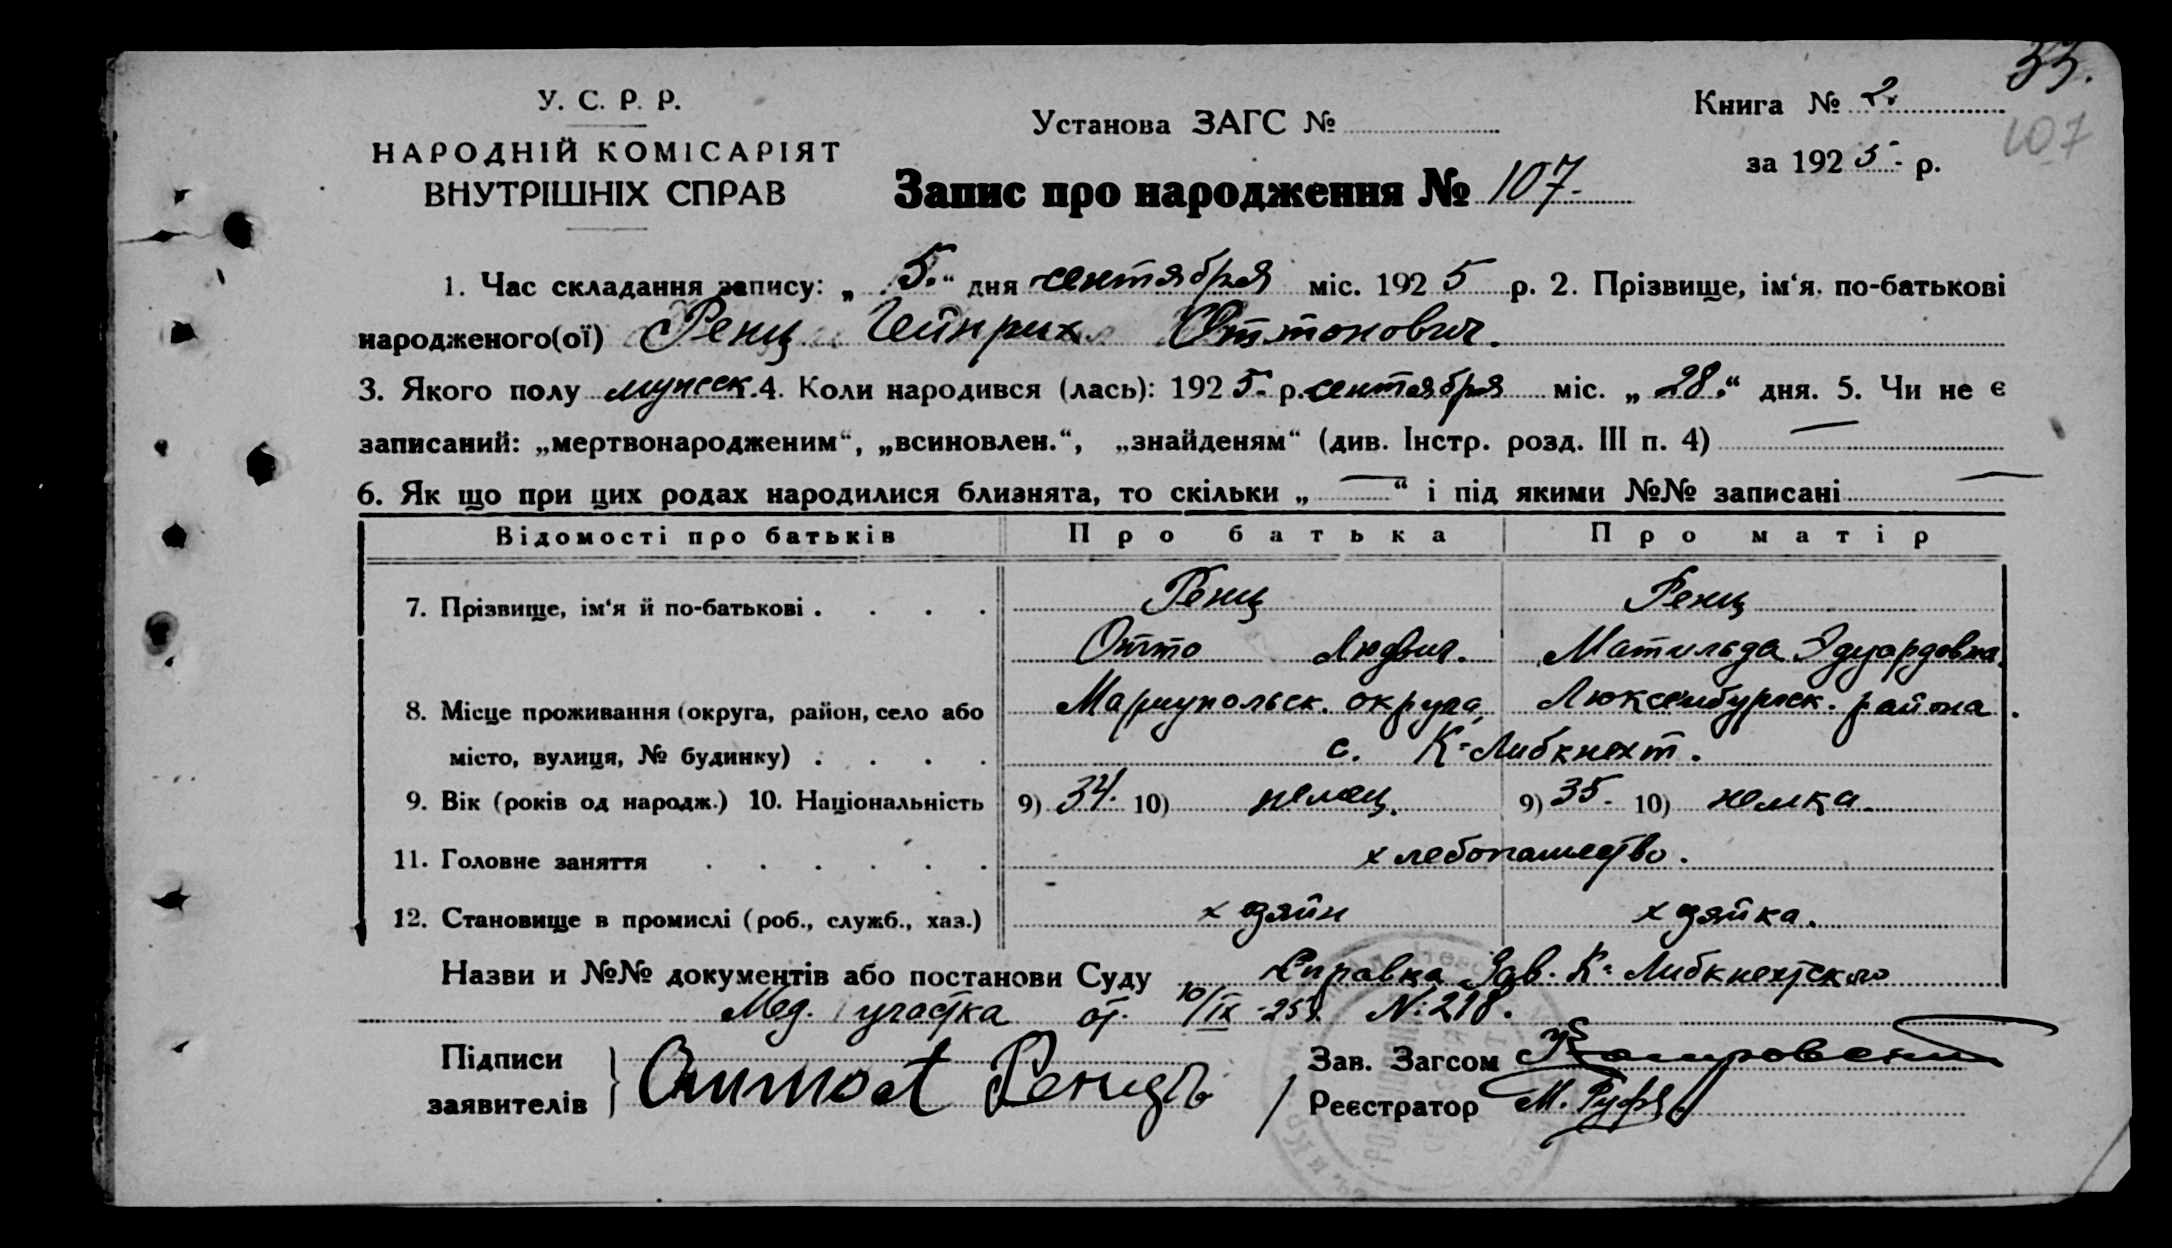 33.
У. С. Р. Р.
НАРОДНІЙ КОМІСАРІЯТ
ВНУТРІШНІХ СПРАВ
Установа ЗАГС №
Книга № 2.
107
за 1925 р.
Запис про народження № 107.
1. Час складання запису: „5.“ дня сентября міс. 1925 р. 2. Прізвище, ім‘я. по-батькові
народженого(ої) Ренц Гейнрих Оттонович.
3. Якого полу мужеск. 4. Коли народився (лась): 1925. р. сентября міс. „28.“ дня. 5. Чи не є
записаний: „мертвонародженим“, „всиновлен.“, „знайденям“ (див. Інстр. розд. III п. 4) —
6. Як що при цих родах народилися близнята, то скільки „—“ і під якими №№ записані —
Відомості про батьків Про батька Про матір
7. Прізвище, ім‘я й по-батькові . . . . Ренц Ренц
Отто Людвиг. Матильда Эдуардовна.
8. Місце проживання (округа, район, село або Мариупольск. округа, Люксембургск. района.
місто, вулиця, № будинку) . . . . с. К-Либкнехт.
9. Вік (років од народж.) 10. Національність 9) 34. 10) немец. 9) 35. 10) немка.
11. Головне заняття . . . . . . хлебопашество.
12. Становище в промислі (роб., служб., хаз.) хозяйн хозяйка.
Назви и №№ документів або постанови Суду Справка Зав. К-Либкнехтского
Мед. участка от 10/IX-25 г. N. 218.
Підписи
заявителів
Ренцъ
Зав. Загсом
Реєстратор М.